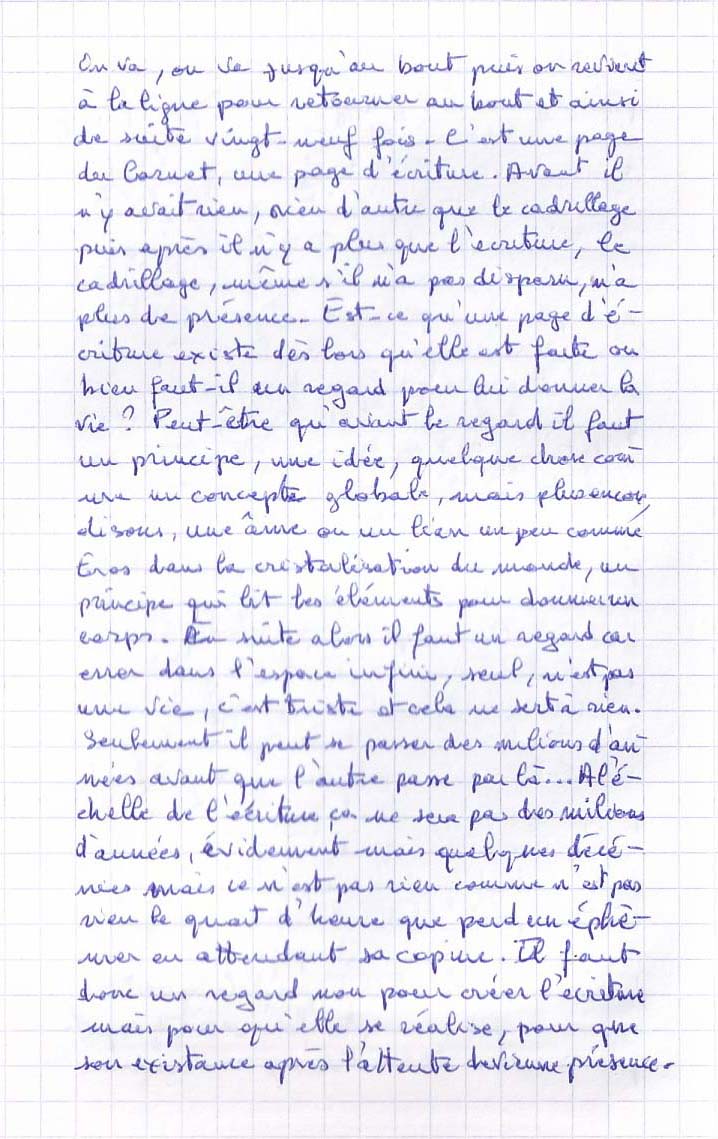 On va, on va jusqu'au bout puis on revient
à la ligne pour retourner au bout et ainsi
de suite vingt-neuf fois - C'est une page
du Carnet, une page d'écriture. Avant il
n'y avait rien, rien d'autre que le cadrillage
puis après il n'y a plus que l'écriture, le
cadrillage, même s'il n'a pas disparu, n'a
plus de présence. Est-ce qu'une page d'é-
criture existe dès lors qu'elle est faite ou
bien faut-il un regard pour lui donner la
vie ? Peut-être qu'avant le regard il faut
un principe, une idée, quelque chose com
me un concepte globale, mais plus encor,
disons, une âme ou un lien un peu comme
Eros dans la cristalisation du monde, un
principe qui lit les éléments pour donner un
corps. En suite alors il faut un regard car
errer dans l'espace infini, seul, n'est pas
une vie, c'est triste et cela ne sert à rien.
Seulement il peut se passer des milions d'an
nées avant que l'autre passe par là... A l'é-
chelle de l'écriture ça ne sera pas des milions
d'années, évidement mais quelques décé-
nies mais ce n'est pas rien comme n'est pas
rien le quart d'heure que perd un éphé-
mer en attendant sa copine. Il faut
donc un regard non pour créer l'écriture
mais pour qu'elle se réalise, pour que
son existance après l'attente devienne présence.